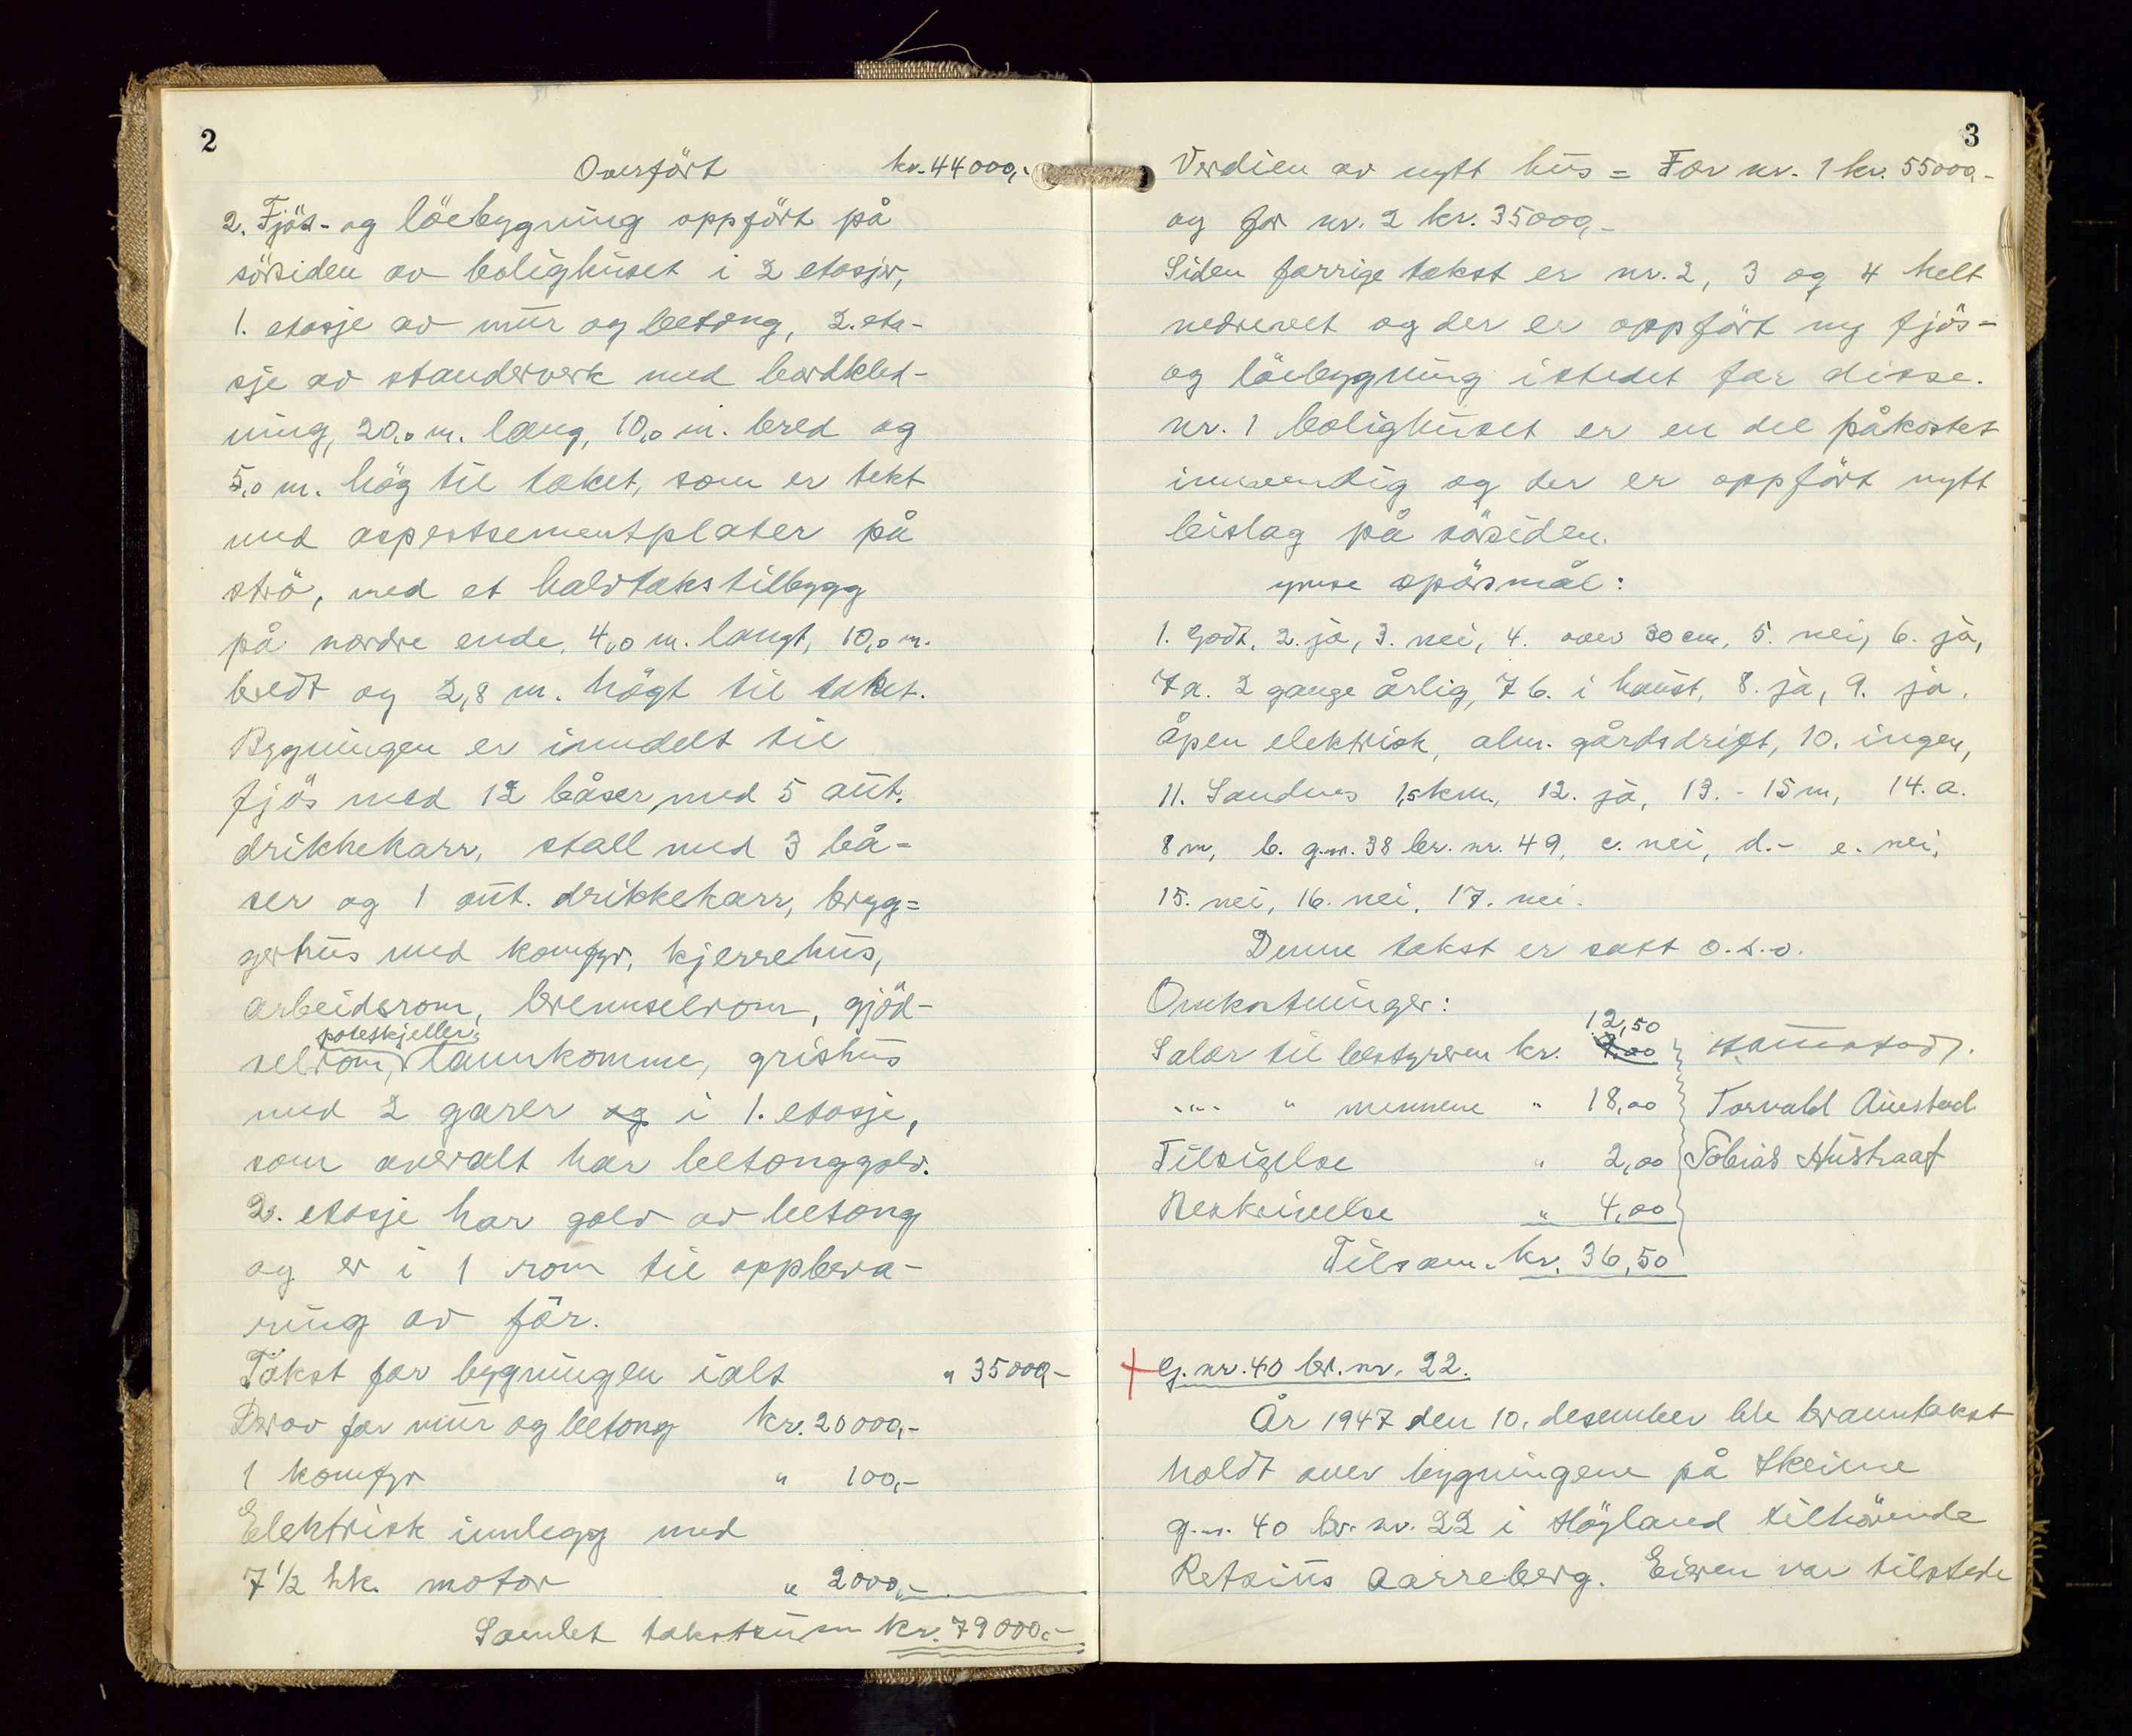 2
Overfört kr. 44000,-
2. Fjös- og löebygning oppfört på
sörsiden av bolighuset i 2 etasjer,
1. etasje av mur og betong, 2. eta-
sje av standerverk med bordkled-
ning, 20,0 m. lang, 10,0 m. bred og
5,0 m. hög til taket, som er tekt
med aspestsementplater på
strö, med et halvtakstilbygg
på nordre ende, 4,0 m. langt, 10,0 m.
bredt og 2,8 m. högt til taket.
Bygningen er inndelt til
fjös med 12 båser med 5 aut.
drikkekarr, stall med 3 bå-
ser og 1 aut. drikkekarr, bryg-
gerhus med komfyr, kjerrehus,
arbeidsrom, brenselrom, gjöd-
potetkjeller,
selrom, landkomme, grishus
med 2 garer og i 1. etasje,
som overalt har betonggolv.
2. etasje har golv av betong
og er i 1 rom til oppbeva-
ring av fôr.
Takst for bygningen ialt " 35000,-
Derav for mur og betong kr. 20000,-
1 komfyr " 100,-
Elektrisk innlegg med
7 1/2 hk. motor " 2000,-
Samlet takstsum kr. 79000,-
3
Verdien av nytt hus = For nr. 1 kr. 55000,-
og for nr. 2 kr. 35000,-
Siden forrige takst er nr. 2, 3 og 4 helt
nedrevet og der er oppfört ny fjös-
og löebygning istedet for disse.
nr. 1 bolighuset er en del påkostet
innvendig og der er oppfört nytt
bislag på sörsiden.
ymse spörsmål:
1. Godt, 2. ja, 3. nei, 4. over 30 cm, 5. nei, 6. ja,
7 a. 2 gange årlig, 7 b. i haust, 8. ja, 9. ja,
åpen elektrisk, alm. gårdsdrift, 10. ingen,
11. Sandnes 1,5 km., 12. ja, 13. - 15 m, 14. a.
8 m, b. g.nr. 38 br. nr. 49, c. nei, d. - e. nei,
15. nei, 16. nei, 17. nei.
Denne takst er satt o.s.v.
Omkostninger:
12,50
Salær til bestyreren kr.
"" " mennene " 18,00 Torvald Austad
Tilsigelse " 2,00 Tobias Hustraat
Beskrivelse " 4,00
Tilsam. kr. 36,50
+ G. nr. 40 br. nr. 22.
År 1947 den 10. desember ble branntakst
holdt over bygningene på Skeime
g.nr. 40 br. nr. 22 i Höyland tilhörende
Retsius Aarreberg. Eieren var tilstede